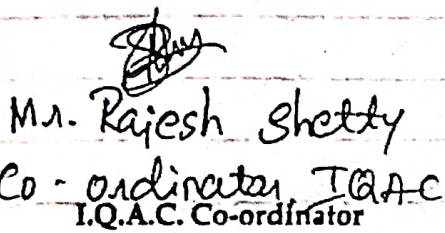 Mr. Rajesh Shetty
Co-ordinator, IQAC
I.Q.A.C. Co-ordinator